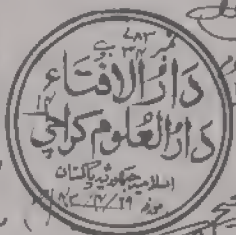 نمبر ٧٨٣
٣٢ ے
دَارُ الْاِفتَاء
دَارُالعُلوم کراچی
اسلامیہ جمہوریہ پاکستان
مورخہ